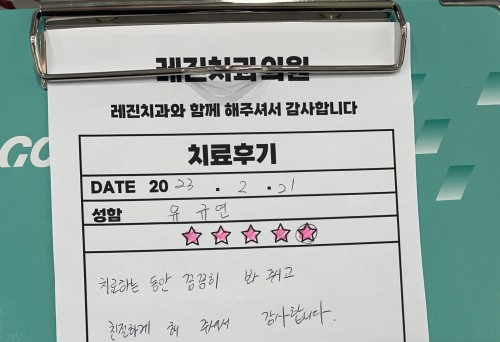 레진치과의원
레진치과와 함께 해주셔서 감사합니다
치료후기
DATE 2023 . 2 . 21
성함 유규연
치료하는 동안 꼼꼼히 봐 주고
친절하게 해 주셔서 감사합니다.